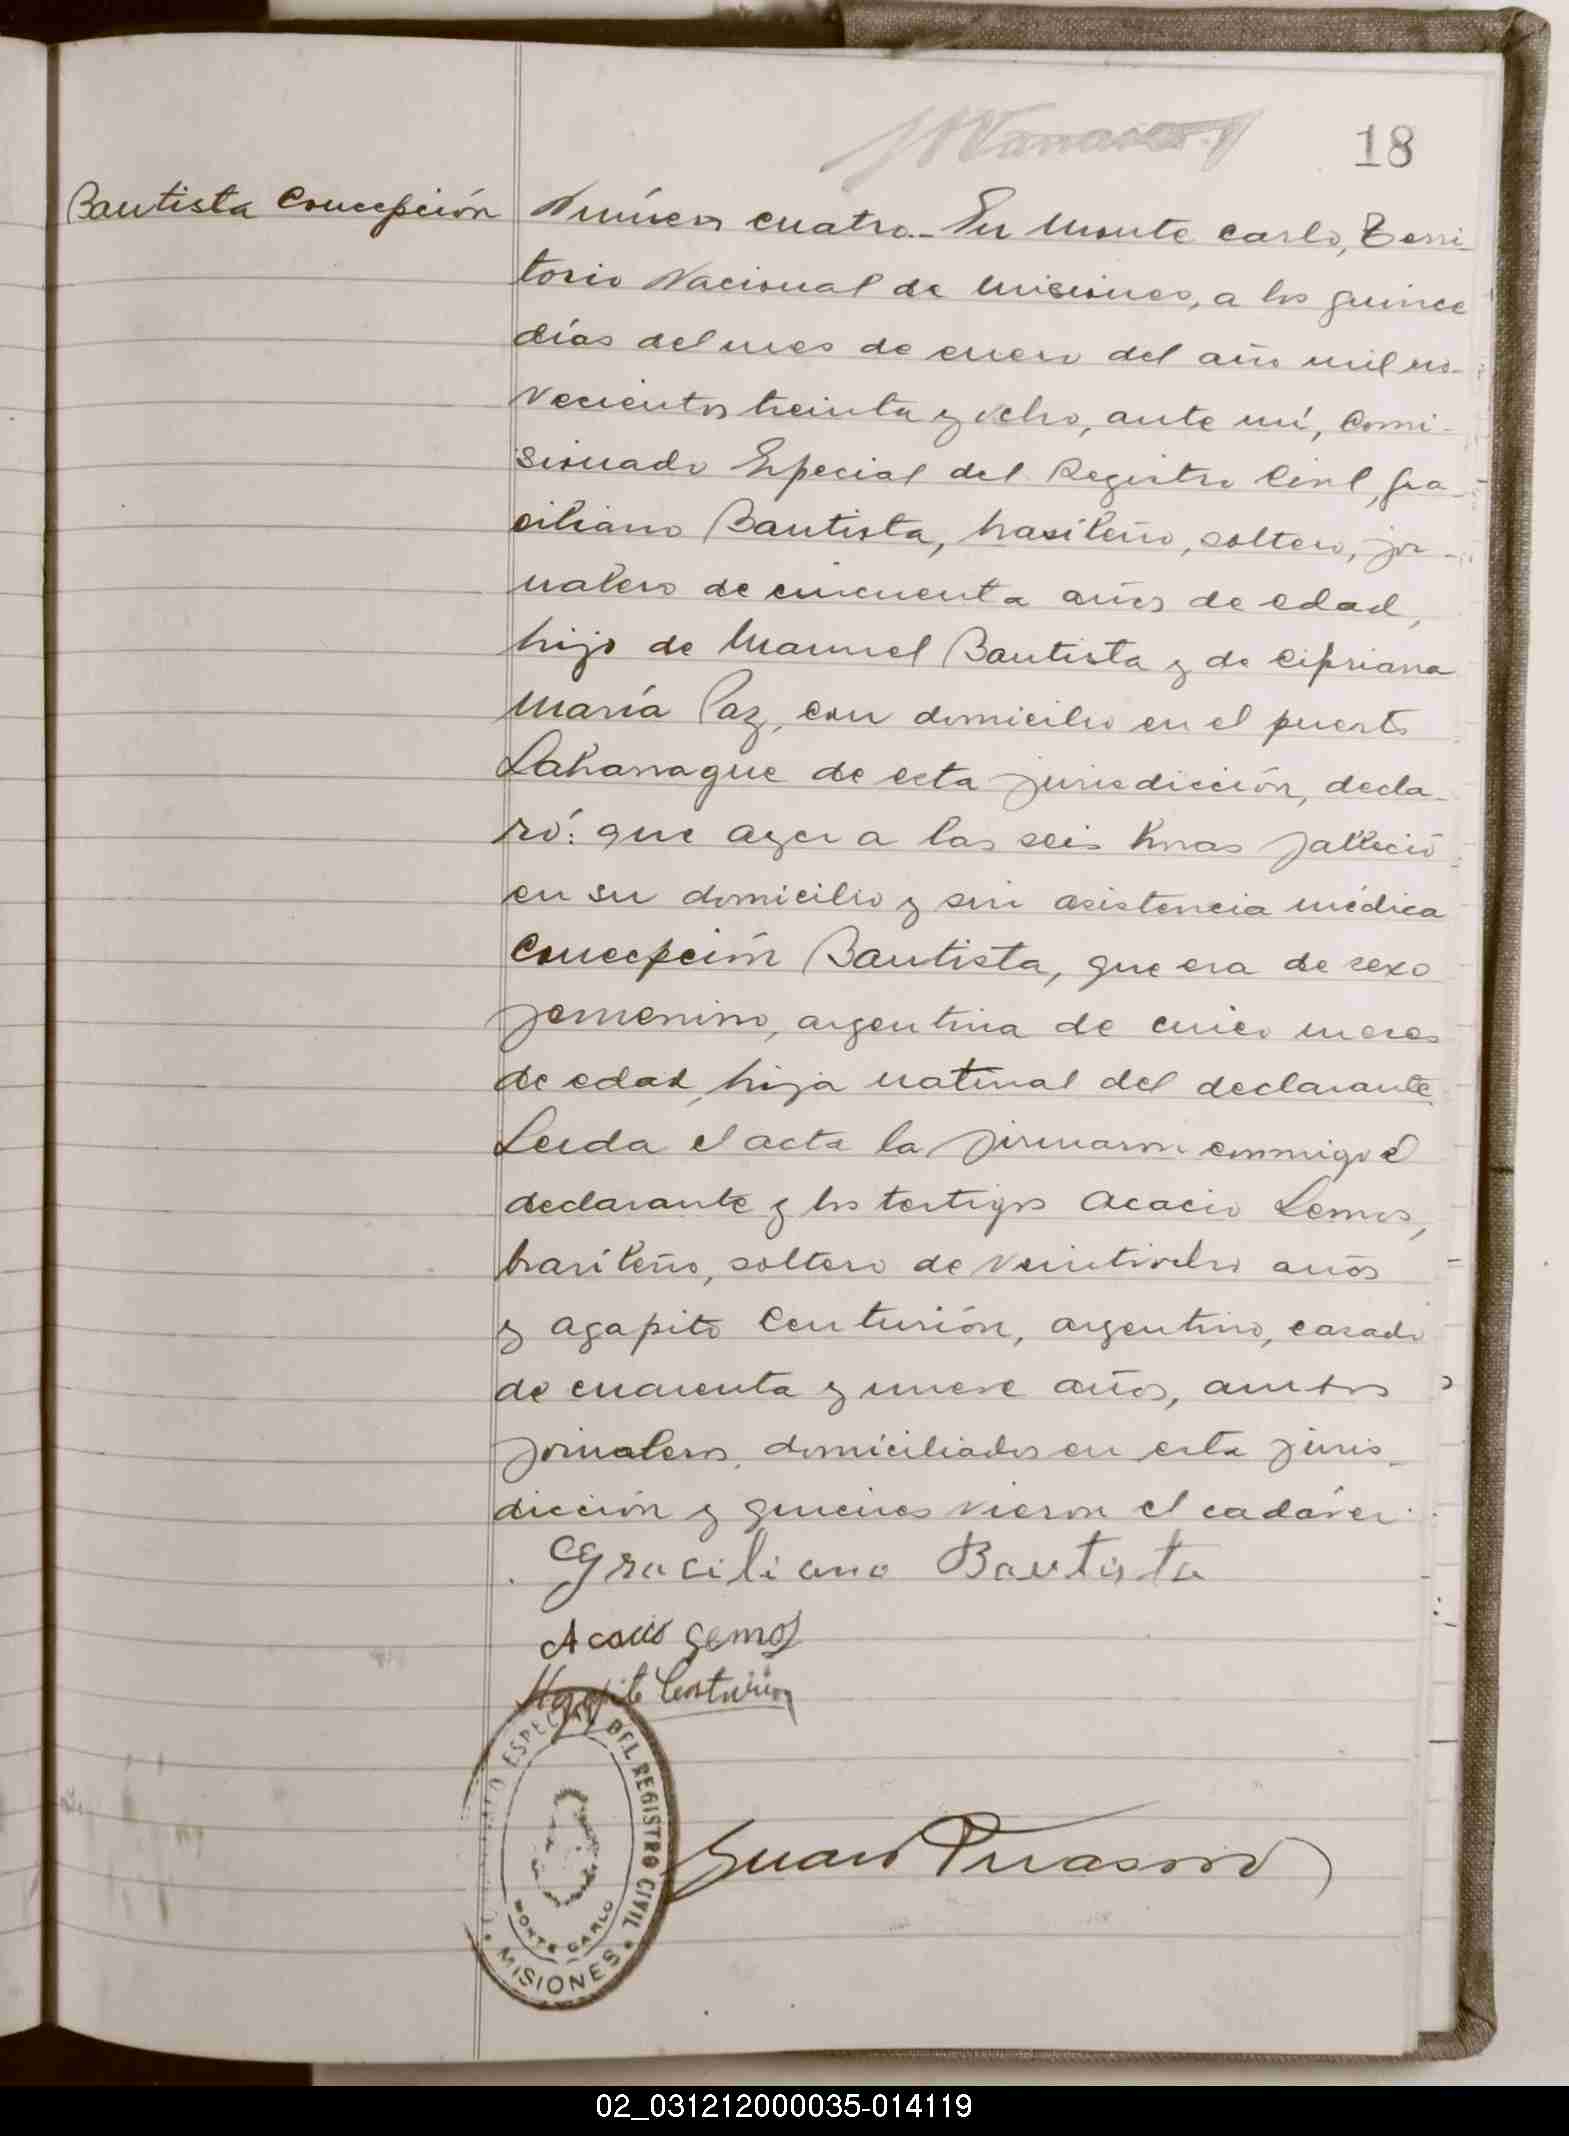 18
Bautista Concepción
Número cuatro.- En Monte Carlo, Terri-
torio Nacional de Misiones, a los quince
días del mes de enero del año mil no-
vecientos treinta y ocho, ante mí, Comi-
sionado Especial del Registro Civil, Gra-
ciliano Bautista, brasileño, soltero, jor-
nalero de cincuenta años de edad,
hijo de Manuel Bautista y de Cipriana
María Paz, con domicilio en el puerto
Laharrague de esta jurisdicción, decla-
ró: que ayer a las seis horas falleció
en su domicilio y sin asistencia médica
Concepción Bautista, que era de sexo
femenino, argentina de cinco meses
de edad, hija natural del declarante.
Leida el acta la firmaron conmigo el
declarante y los testigos Acacio Lemos,
brasileño, soltero de veintiocho años
y Agapito Centurión, argentino, casado
de cuarenta y nueve años, ambos
jornaleros, domiciliados en esta juris-
dicción y quienes vieron el cadáver.
Graciliano Bautista
Acacio Lemos
Agapito Centurión
ESPECIAL DEL REGISTRO CIVIL
MONTE CARLO
MISIONES
Juan
02_031212000035-014119